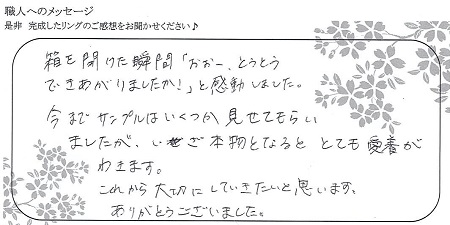 職人へのメッセージ
是非 完成したリングのご感想をお聞かせください♪
箱を開けた瞬間「おぉー、とうとう
できあがりましたか!」と感動しました。
今までサンプルはいくつか見せてもらい
ましたが、いざ本物となると とても愛着が
わきます。
これから大切にしていきたいと思います。
ありがとうございました。